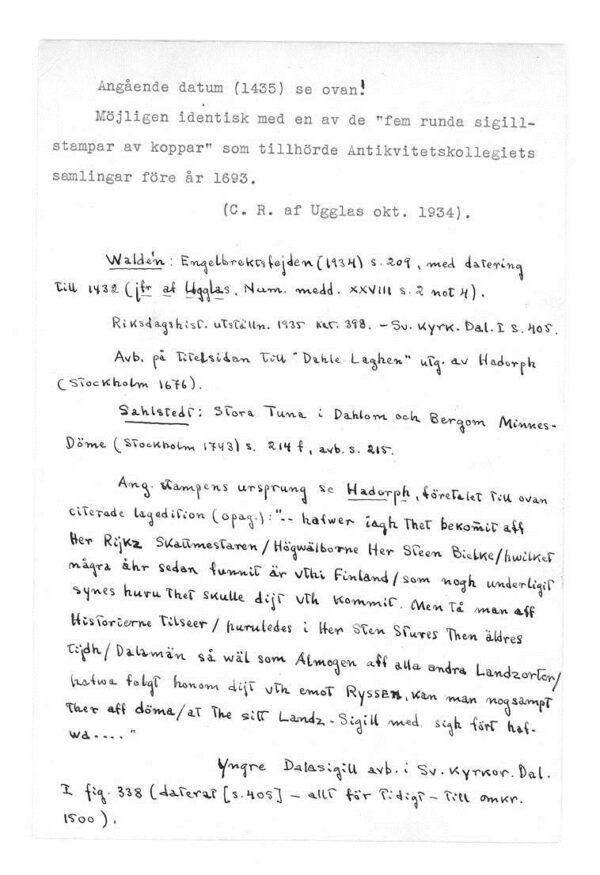 Angående datum (1435) se ovan!
Möjligen identisk med en av de "fem runda sigill-
stampar av koppar" som tillhörde Antikvitetskollegiets
samlingar före år 1693.
(C. R. af Ugglas okt. 1934).
Waldén: Engelbrektsfejden (1934) s. 209, med datering
till 1432 (jfr af Ugglas, Num. medd. XXVIII s. 2 not 4).
Riksdagshist. utställn. 1935 kat. 398. - Sv. Kyrk. Dal. I s. 405.
Avb. på titelsidan till "Dahle Laghen" utg. av Hadorph
(Stockholm 1676).
Sahlstedt: Stora Tuna i Dahlom och Bergom Minnes-
Döme (Stockholm 1743) s. 214 f, avb. s. 215.
Ang. stampens ursprung se Hadorph, företalet till ovan
citerade lagedition (opag.): "-- hafwer iagh thet bekom̃it aff
Her Rijkz Skattmestaren / Högwälborne Her Steen Bielke/hwilket
några åhr sedan funnit är vthi Finland/som nogh underligit
synes huru thet skulle dijt vth kommit. Men tå man aff
Historierne tilseer / huruledes i Her Sten Stures then äldres
tijdh/Dalamän så wäl som Almogen aff alla andra Landzorter/
hafwa folgt honom dijt vth emot Ryssen, kan man nogsampt
ther aff döma/at the sitt Landz-Sigill med sigh fört haf-
wa...."
Yngre Dalasigill avb. i Sv. Kyrkor. Dal.
I fig. 338 (daterat [s. 405] - allt för tidigt - till omkr.
1500).